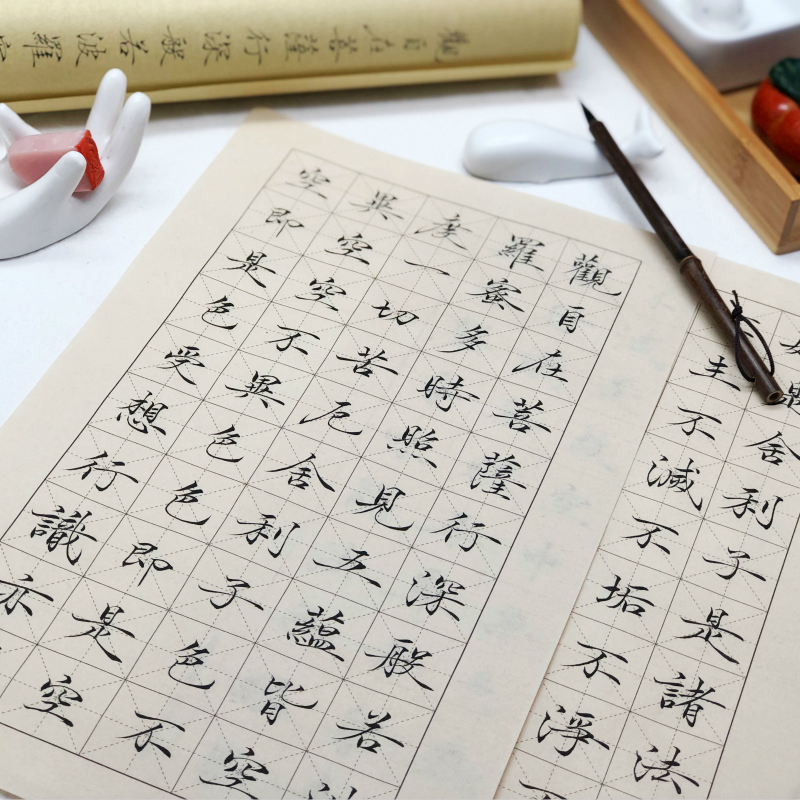 觀自在菩薩行深般若波羅
觀自在菩薩行深般若
羅蜜多時照見五蘊皆空
度一切苦厄舍利子色不
異空空不異色色即是空
空即是色受想行識亦
是舍利子是諸法
生不滅不垢不淨不